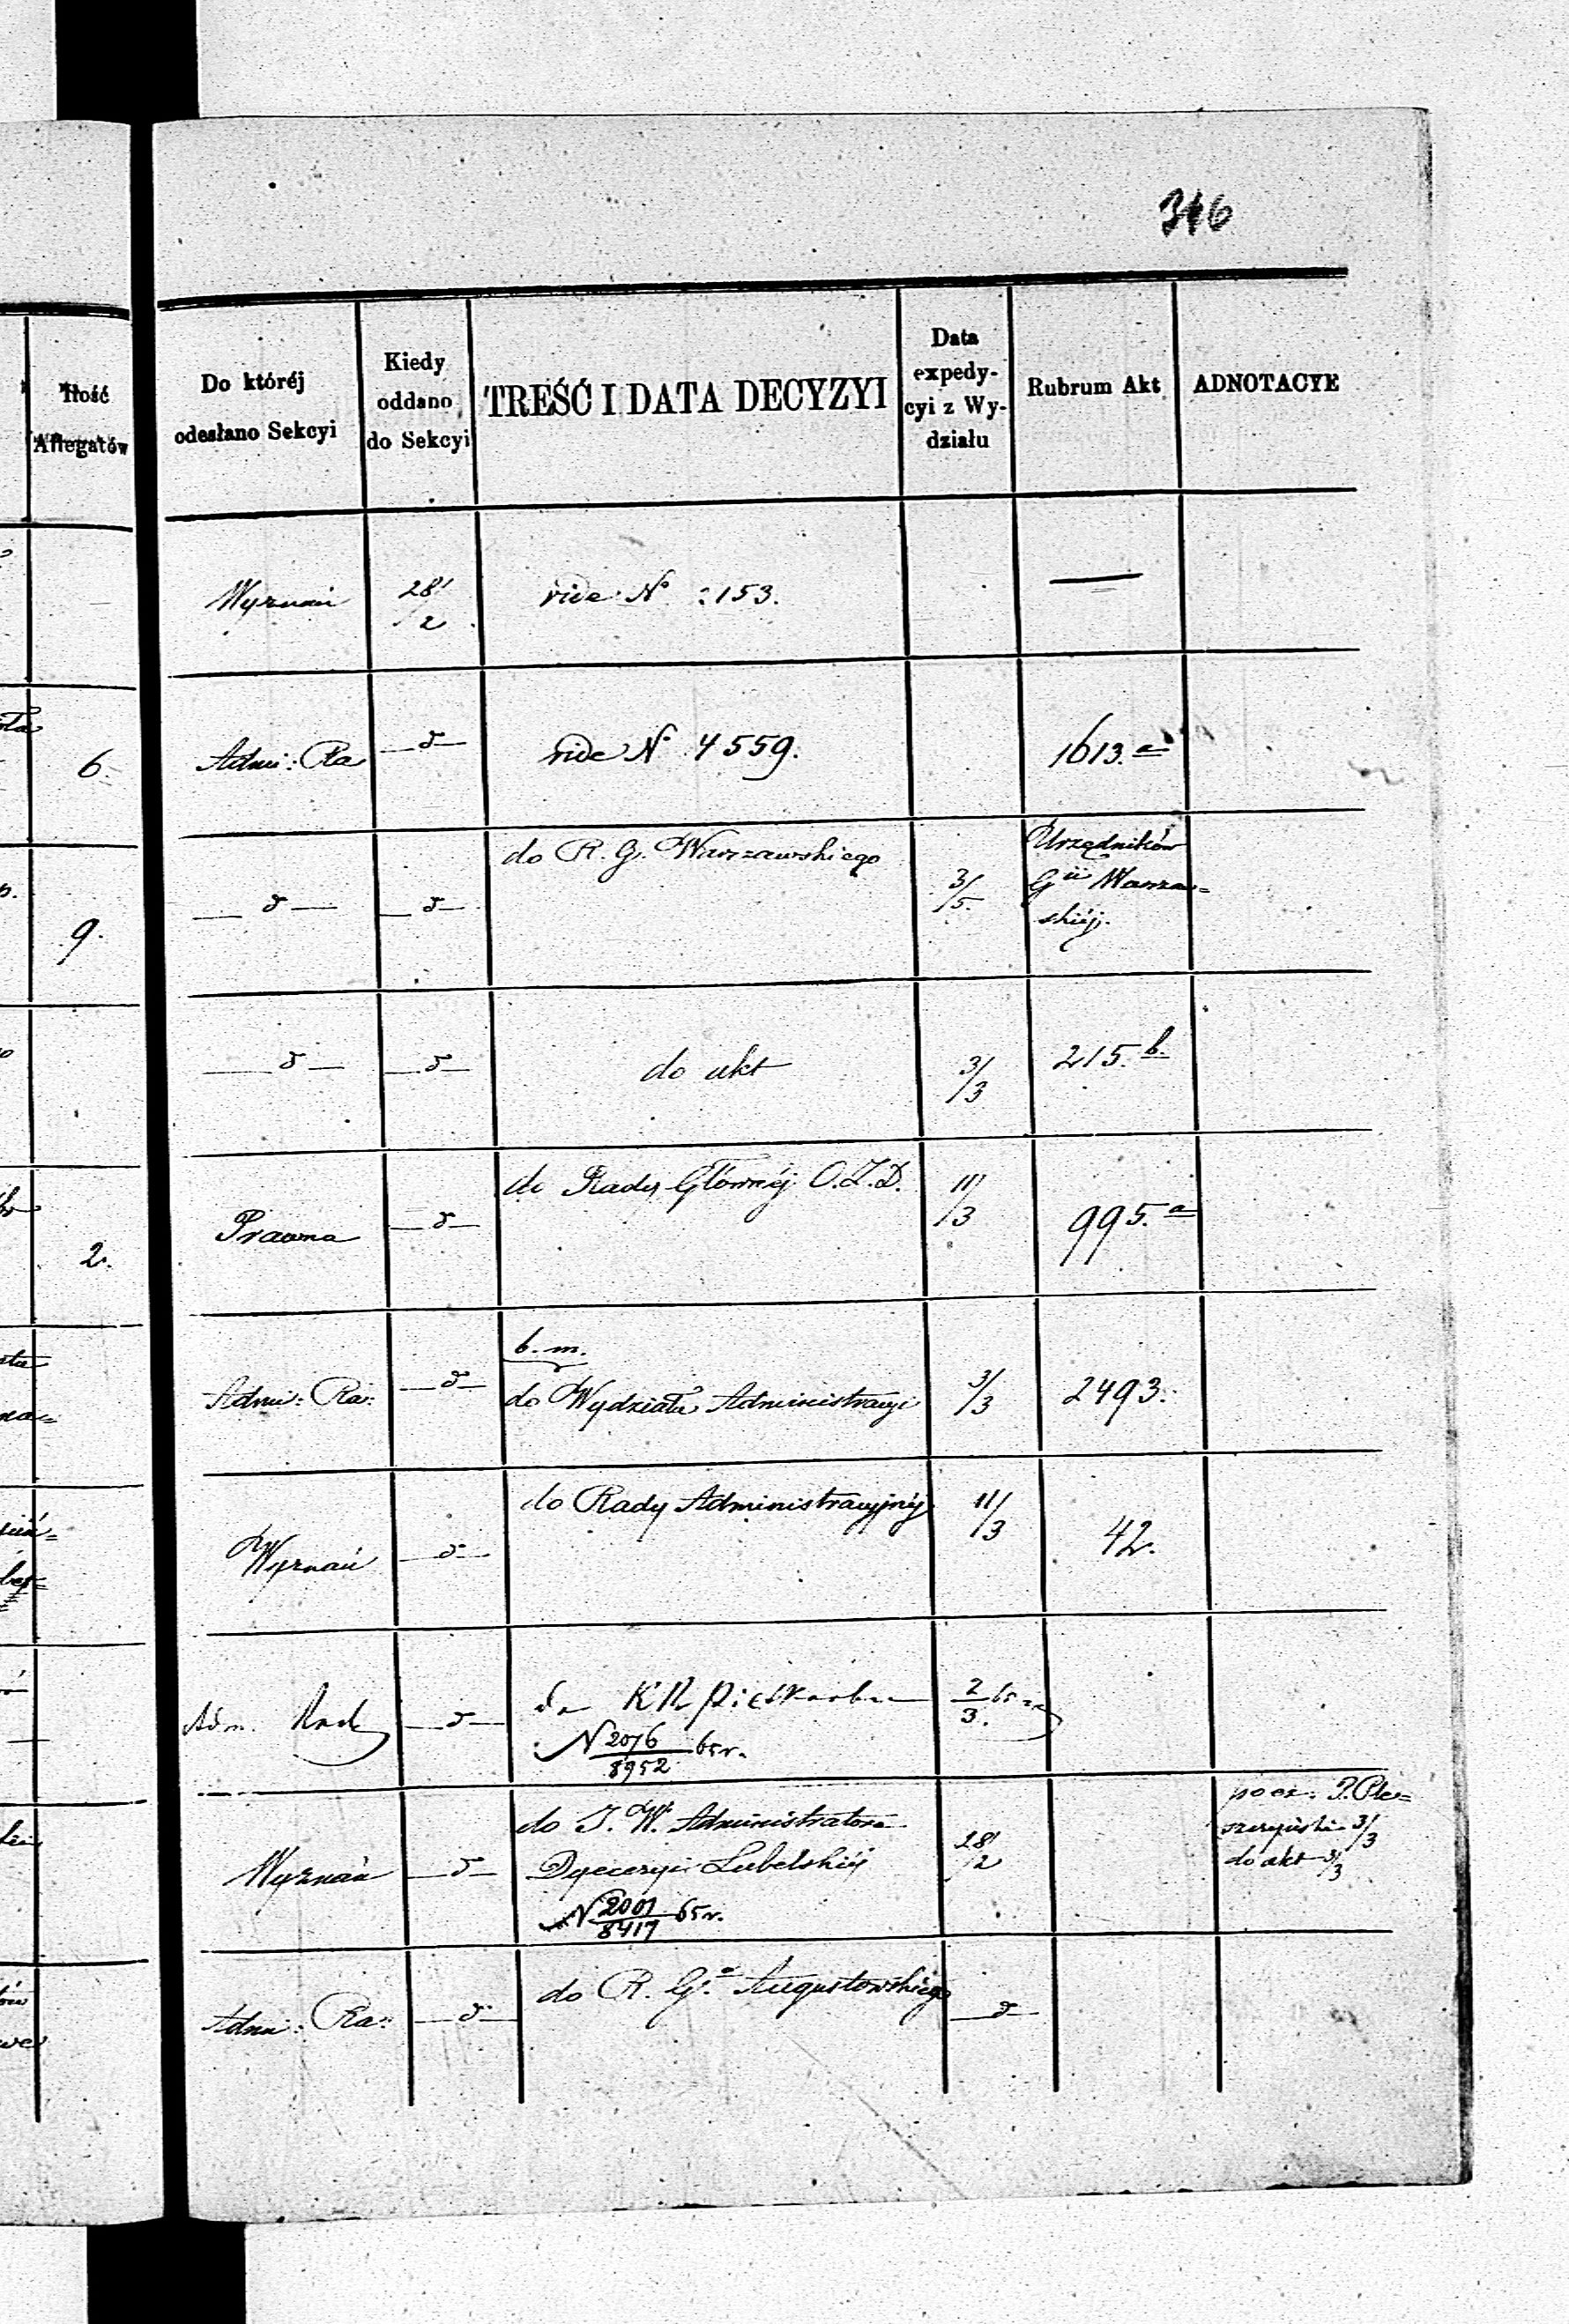 316
Ilość
Allegatów
Do któréj
odesłano Sekcyi
Kiedy
oddano
do Sekcyi
TREŚĆ I DATA DECYZYI
Data
expedy-
cyi z Wy-
działu
Rubrum Akt
ADNOTACYE
Wyznań
28/2
vide No : 153.
—
6.
Admi: Ra
—d—
vide No 4559.
1613. a
9.
—d—
—d—
do R. G. Warszawskiego
3/5.
Urzędników
Gii Warsza=
skiéj.
—d—
—d—
do akt
3/3
215. b.
2.
Prawna
—d—
do Rady Głównéj O.Z.D.
11/3
995. a
Admi: Ra:
—d—
b. m.
do Wydziału Administracyi
3/3
2493.
Wyznań
—d—
do Rady Administracyjnéj
11/3
42.
Adm.
—d—
2/3. 65
N 2076/8952 65r.
Wyznań
—d—
do J. W. Administratora
Dyecezyi Lubelskiéj
N 2001/8417 65r.
28/2
3/3
do akt 3/3
Admi: Ra:
—d—
do R. Go. Augustowskiego
—d—